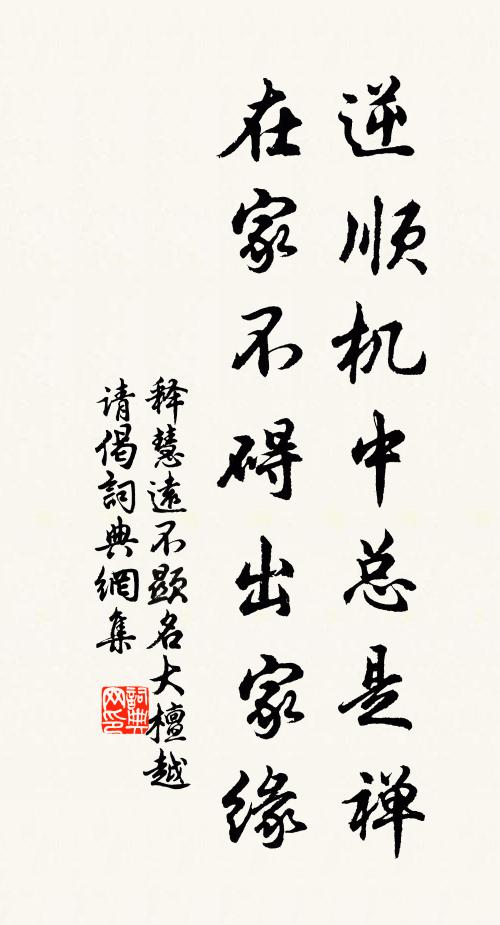 逆顺机中总是禅
在家不碍出家缘
释慧遠不顯名大檀越
请偈詞典網集
詞典网印